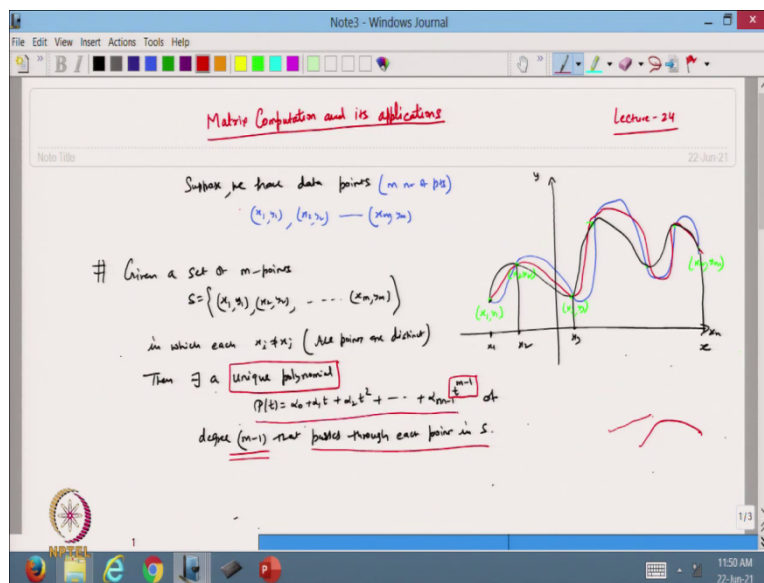 Note3 - Windows Journal
File Edit View Insert Actions Tools Help
B I
Matrix Computation and its applications
Lecture-24
Note Title
22-Jun-21
Suppose, we have data points (m no of pts)
(x₁,y₁), (x₂,y₂) — (xₘ,yₘ)
# Given a set of m-points
S={(x₁,y₁),(x₂,y₂), ---- (xₘ,yₘ)}
in which each xᵢ≠xⱼ (All points are distinct)
Then ∃ a unique polynomial
P(t)= α₀+α₁t + α₂t² + -- + αₘ₋₁tᵐ⁻¹ of
degree (m-1) that passes through each point in S.
y
(x₁,y₁)
(x₂,y₂)
(x₃,y₃)
(xₘ,yₘ)
x₁
x₂
x₃
xₘ
x
1/3
NPTEL
1
11:50 AM
22-Jun-21